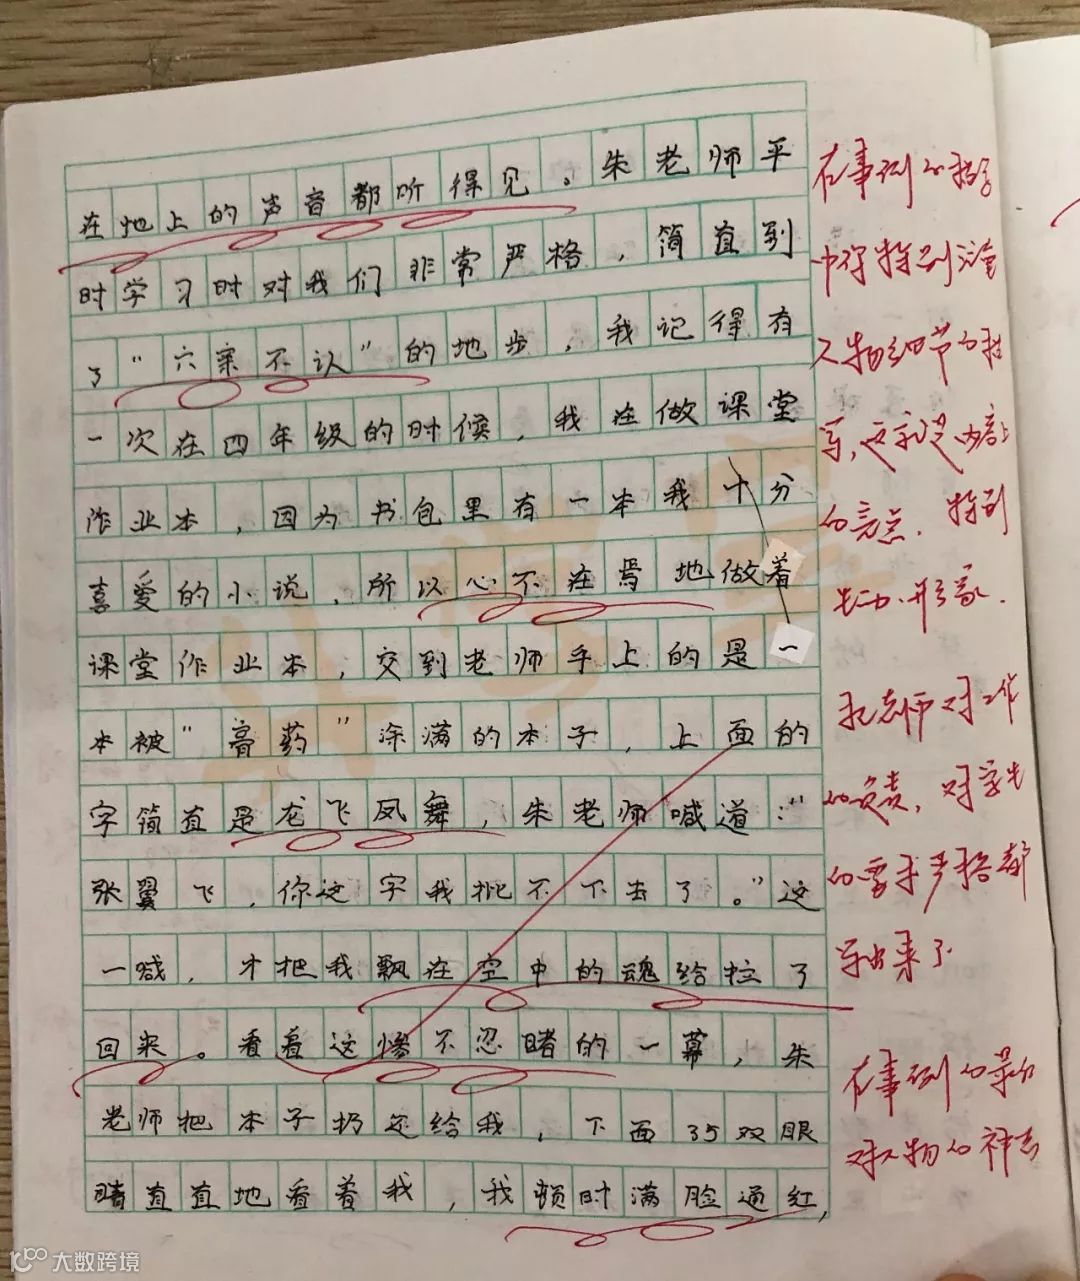 在地上的声音都听得见。朱老师平
时学习时对我们非常严格，简直到
了“六亲不认”的地步，我记得有
一次在四年级的时候，我在做课堂
作业本，因为书包里有一本我十分
喜爱的小说，所以心不在焉地做着
课堂作业本，交到老师手上的是一
本被“膏药”涂满的本子，上面的
字简直是龙飞凤舞，朱老师喊道：“
张翼飞，你这字我批不下去了。”这
一喊，才把我飘在空中的魂给拉了
回来。看着这惨不忍睹的一幕，朱
老师把本子扔还给我，下面35双眼
睛直直地看着我，我顿时满脸通红，
在事例的
中你特别注重
人物细节的描
写，这就是内容上
的亮点，特别
生动、形象。
老师对工作
的负责，对学生
的要求严格都
写出来了
在事例的
对人物的神态
大数跨境